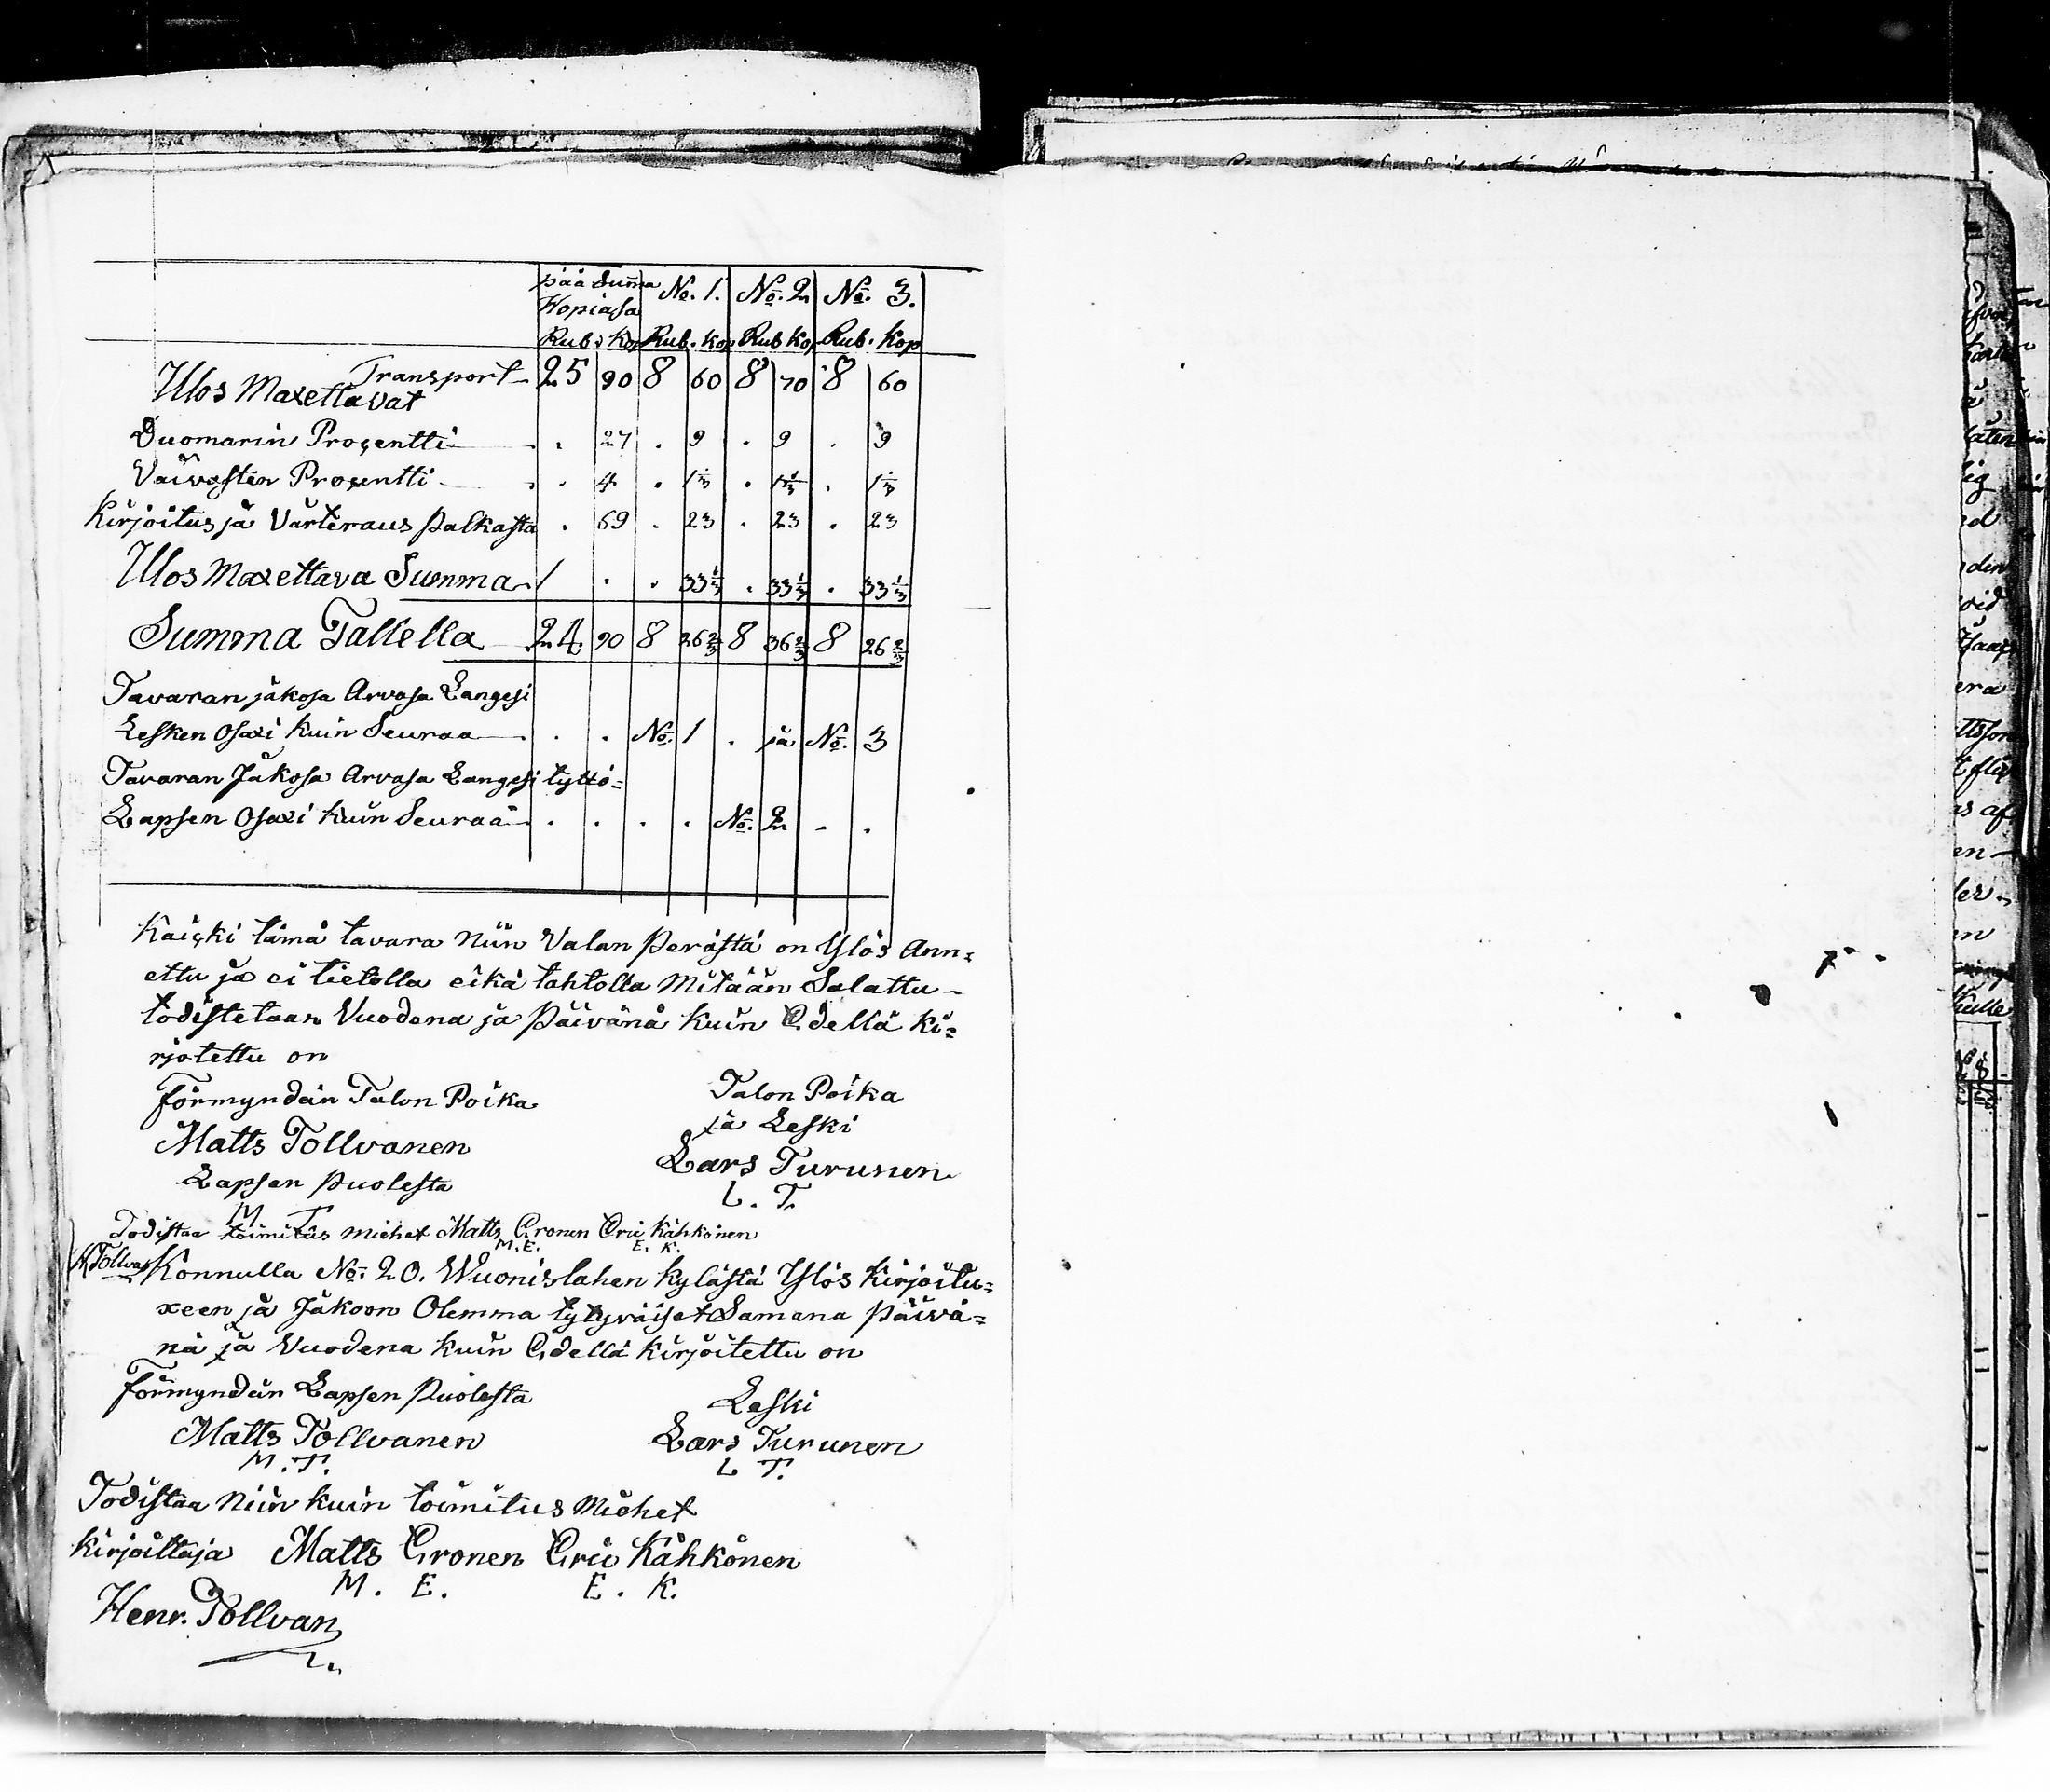 pää Summa No. 1. No. 2 No. 3.
Kopiasa
Rub. Kop Rub. Kop Rub Kop Rub. Kop
Transport 25 90 8 60 8 70 8 60
Ulos Maxettavat
Duomarin Prosentti . . 27 . 9 . 9 . 9
Vaivasten Prosentti . . 4 . 1⅓ . 1⅓ . 1⅓
Kirjoitus jä Värteraus palkasta . 69 . 23 . 23 . 23
Ulos Maxettava Summa 1 . . 33⅓ . 33⅓ . 33⅓
Summa Tallella 24 90 8 26⅔ 8 36⅔ 8 26⅔
Tavaran jakosa Arvasa Langesi
Lesken Osaxi kuin Seuraa . . No. 1 . ja No. 3
Tavaran Jakosa Arvasa Langesi tyttö=
Lapsen Osaxi kuin Seuraa . . . . No. 2 . .
Kaiski tämä tavara niin Valan perästä on Ylös Ann=
ettu ja ei tietolla eikä tahtolla Mitään Salattu -
todistetaan Vuodena ja päivänä kuin Edellä ki=
rjotettu on
förmyndär Talon Poika Talon Poika
ja Leski
Matts Tollvanen Lars Turunen
Lapsen puolesta L. T.
M T
Todistaa toimitus miehet Matts Eronen Eric Kähkönen
M. E. E. K.
Konnulla No. 20. Wuonislahen kylästä Ylös Kirjoitu=
xeen ja Jakoon Olemma tytyväiset Samana päivä=
nä ja Vuodena kuin Edellä kirjoitettu on
förmyndär Lapsen puolesta Leski
Matts Tollvanen Lars Turunen
M. T. L T.
Todistaa niin kuin toimitus Miehet
kirjoittaja Matts Eronen Eric Kähkönen
M. E. E. K.
Henr. Tollvan